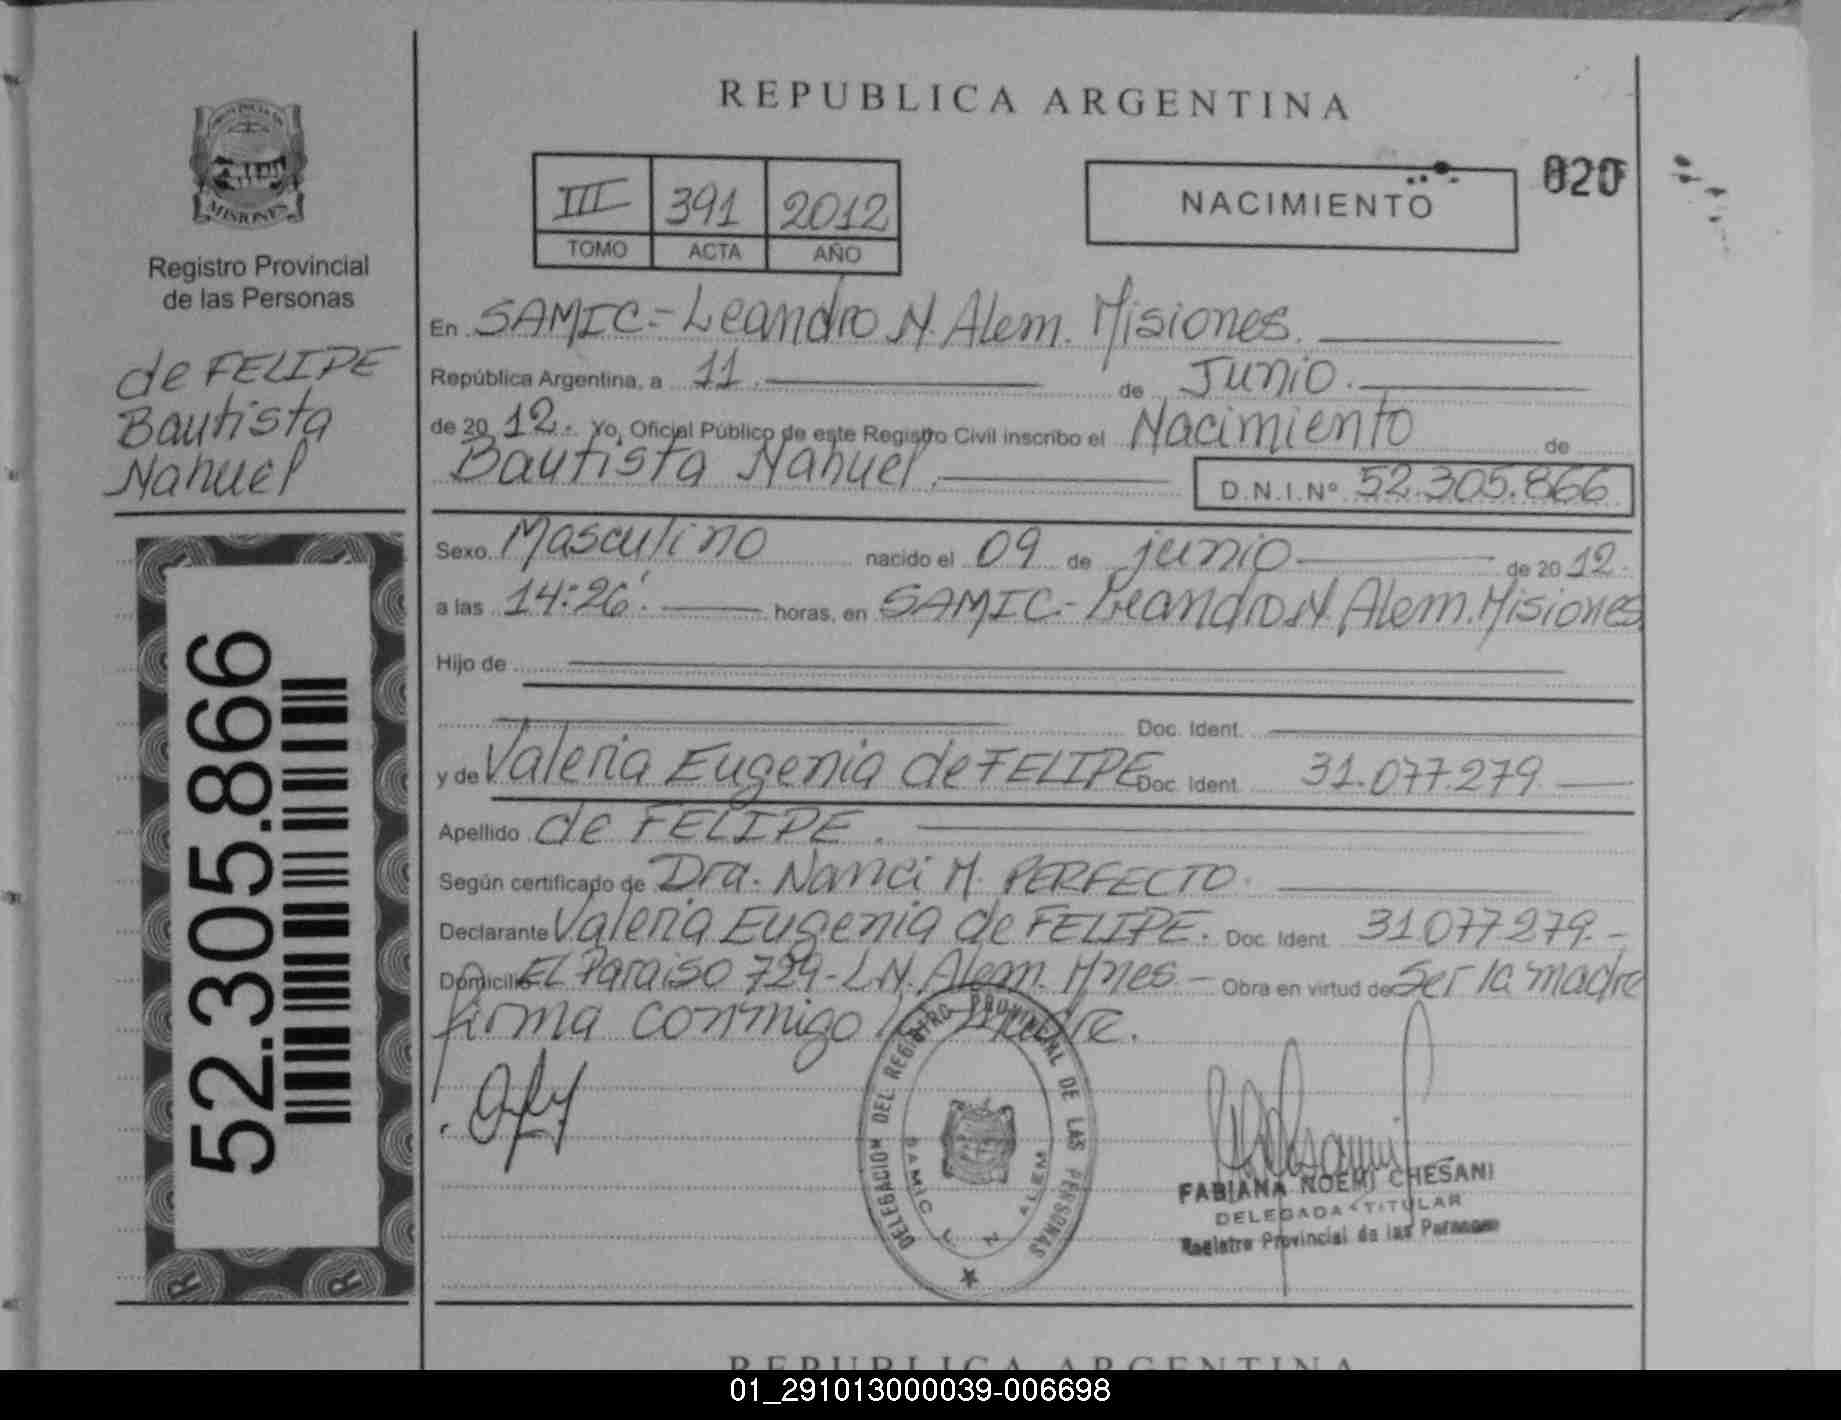 REPUBLICA ARGENTINA
PROVINCIA DE
MISIONES
Registro Provincial
de las Personas
de FELIPE
Bautista
Nahuel
52.305.866
R R
III 391 2012
TOMO ACTA AÑO
NACIMIENTO
020
En SAMIC-Leandro N. Alem. Misiones.
República Argentina, a 11. de Junio.
de 2012. Yo, Oficial Público de este Registro Civil inscribo el Nacimiento de
Bautista Nahuel. D.N.I.Nº 52.305.866
Sexo Masculino nacido el 09 de junio de 2012.
a las 14:26'. horas, en SAMIC-Leandro N. Alem. Misiones
Hijo de
Doc. Ident.
y de Valeria Eugenia de FELIPE Doc. Ident. 31.077.279
Apellido de FELIPE.
Según certificado de Dra. Nanci M. PERFECTO.
Declarante Valeria Eugenia de FELIPE. Doc. Ident. 31077279.-
Domicilio El Paraiso 729-L.N. Alem. Mnes.- Obra en virtud de Ser la madre
firma conmigo la madre.
DELEGACION DEL REGISTRO PROVINCIAL DE LAS PERSONAS
SAMIC L N ALEM
FABIANA NOEMI CHESANI
DELEGADA TITULAR
Registro Provincial de las Personas
REPUBLICA ARGENTINA
01_291013000039-006698